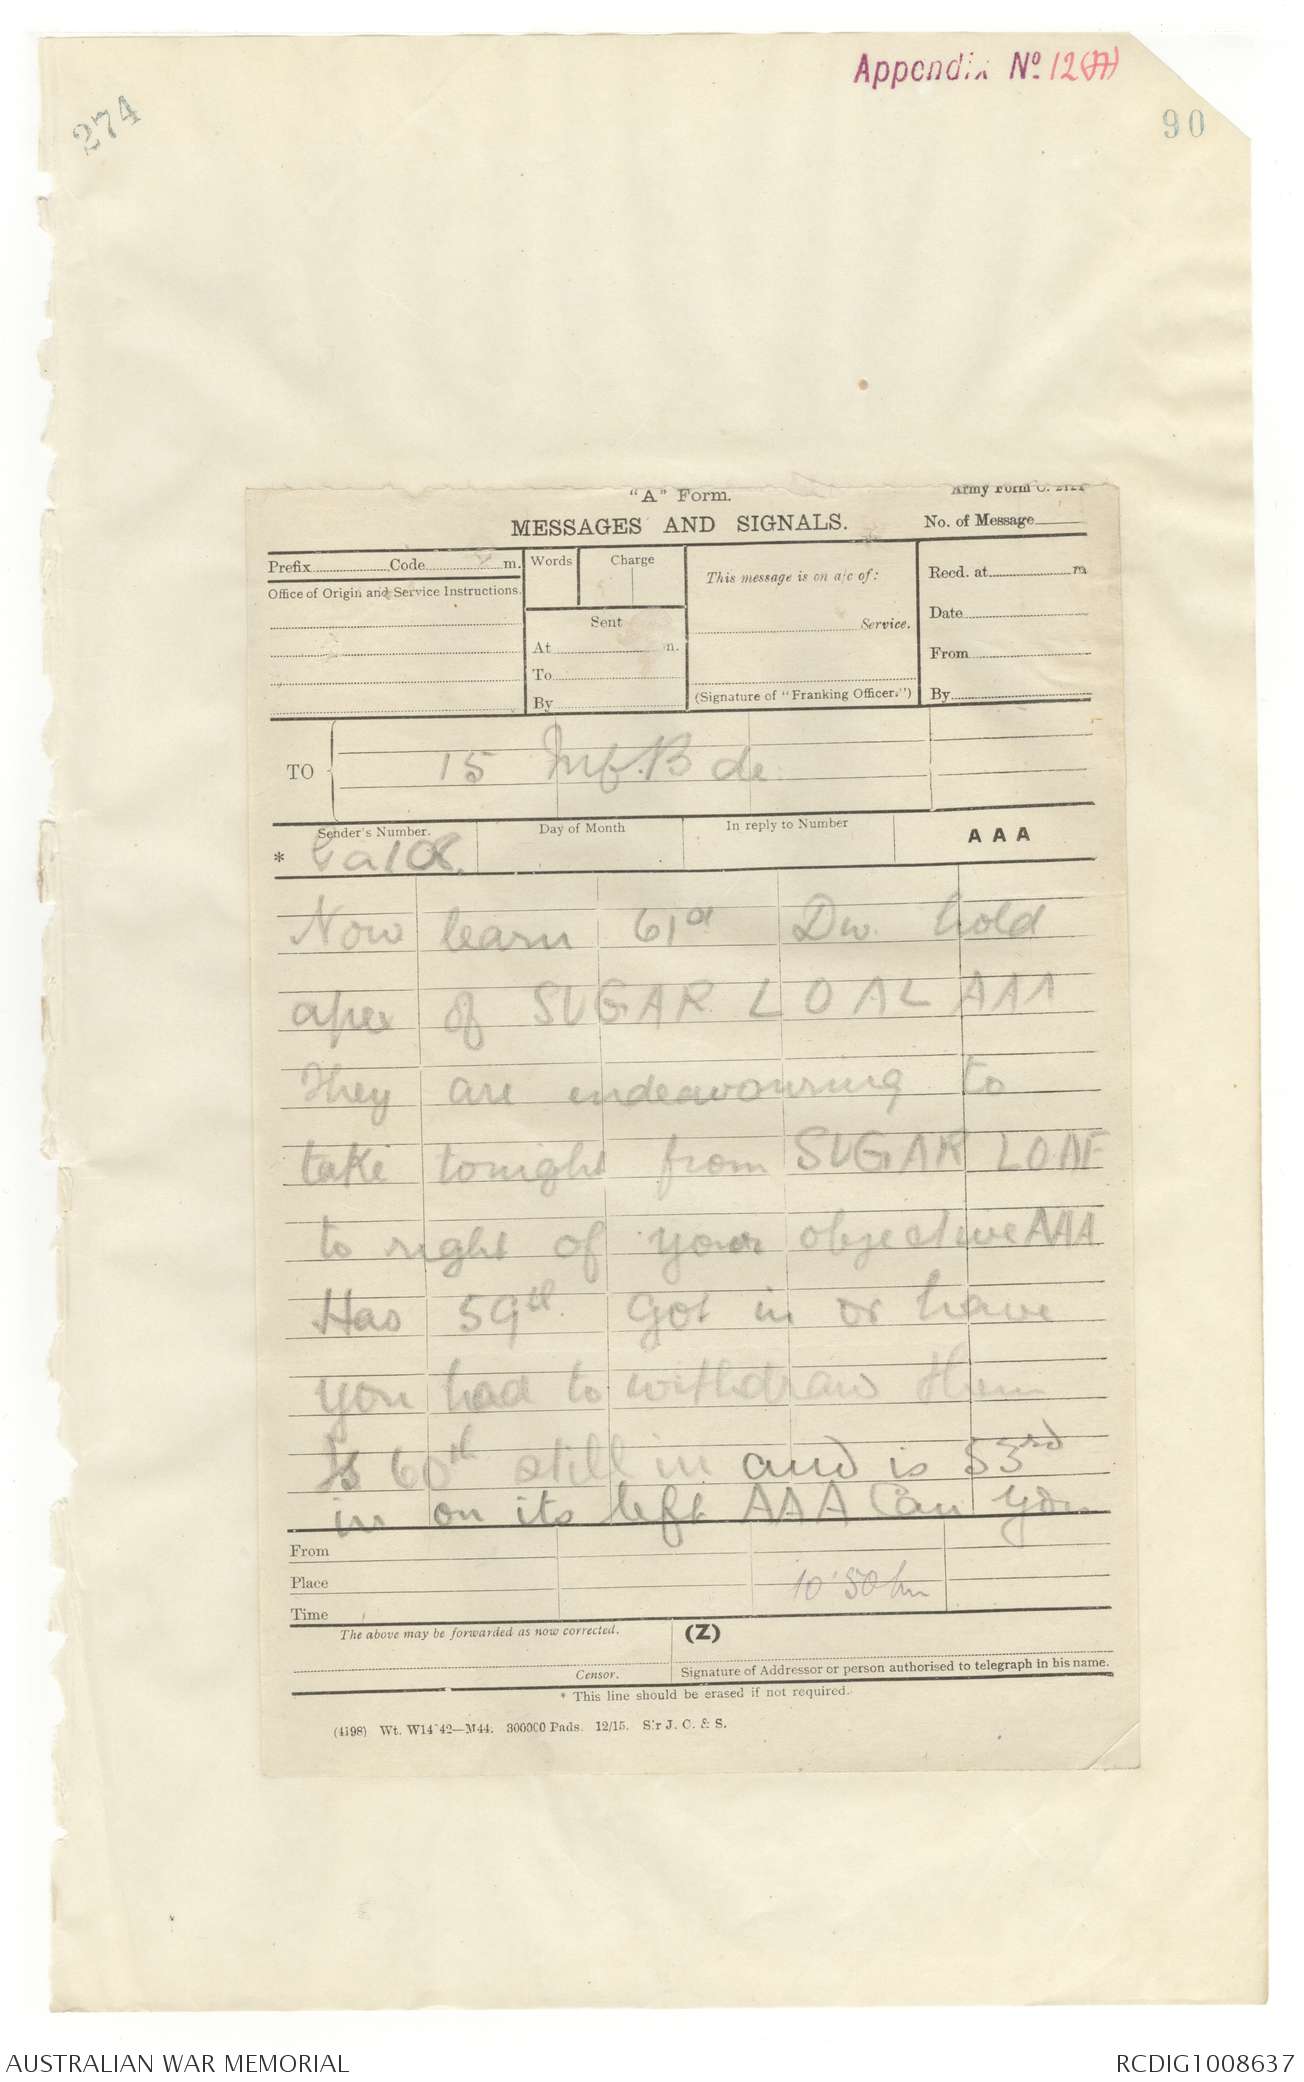 Appendix No 12(A)
274
90
"A" Form.
Army Form C. 2121
MESSAGES AND SIGNALS.
No. of Message
Prefix Code m.
Words Charge
This message is on a/c of:
Recd. at m
Office of Origin and Service Instructions.
Sent
Date
Service.
At m.
From
To
(Signature of "Franking Officer.")
By
By
TO
15 Inf. Bde.
Sender's Number.
Day of Month
In reply to Number
AAA
* Ga108.
Now learn 61st Div. hold
apex of SUGAR LOAL AAA
They are endeavouring to
take tonight from SUGAR LOAF
to right of your objective AAA
Has 59th got in or have
you had to withdraw them
Is 60th still in and is 53rd
in on its left AAA Can you
From
Place
10.50 pm
Time
The above may be forwarded as now corrected.
(Z)
Censor.
Signature of Addressor or person authorised to telegraph in his name.
* This line should be erased if not required.
(4198) Wt. W14 42—M44. 300000 Pads. 12/15. Sir J. C. & S.
AUSTRALIAN WAR MEMORIAL
RCDIG1008637